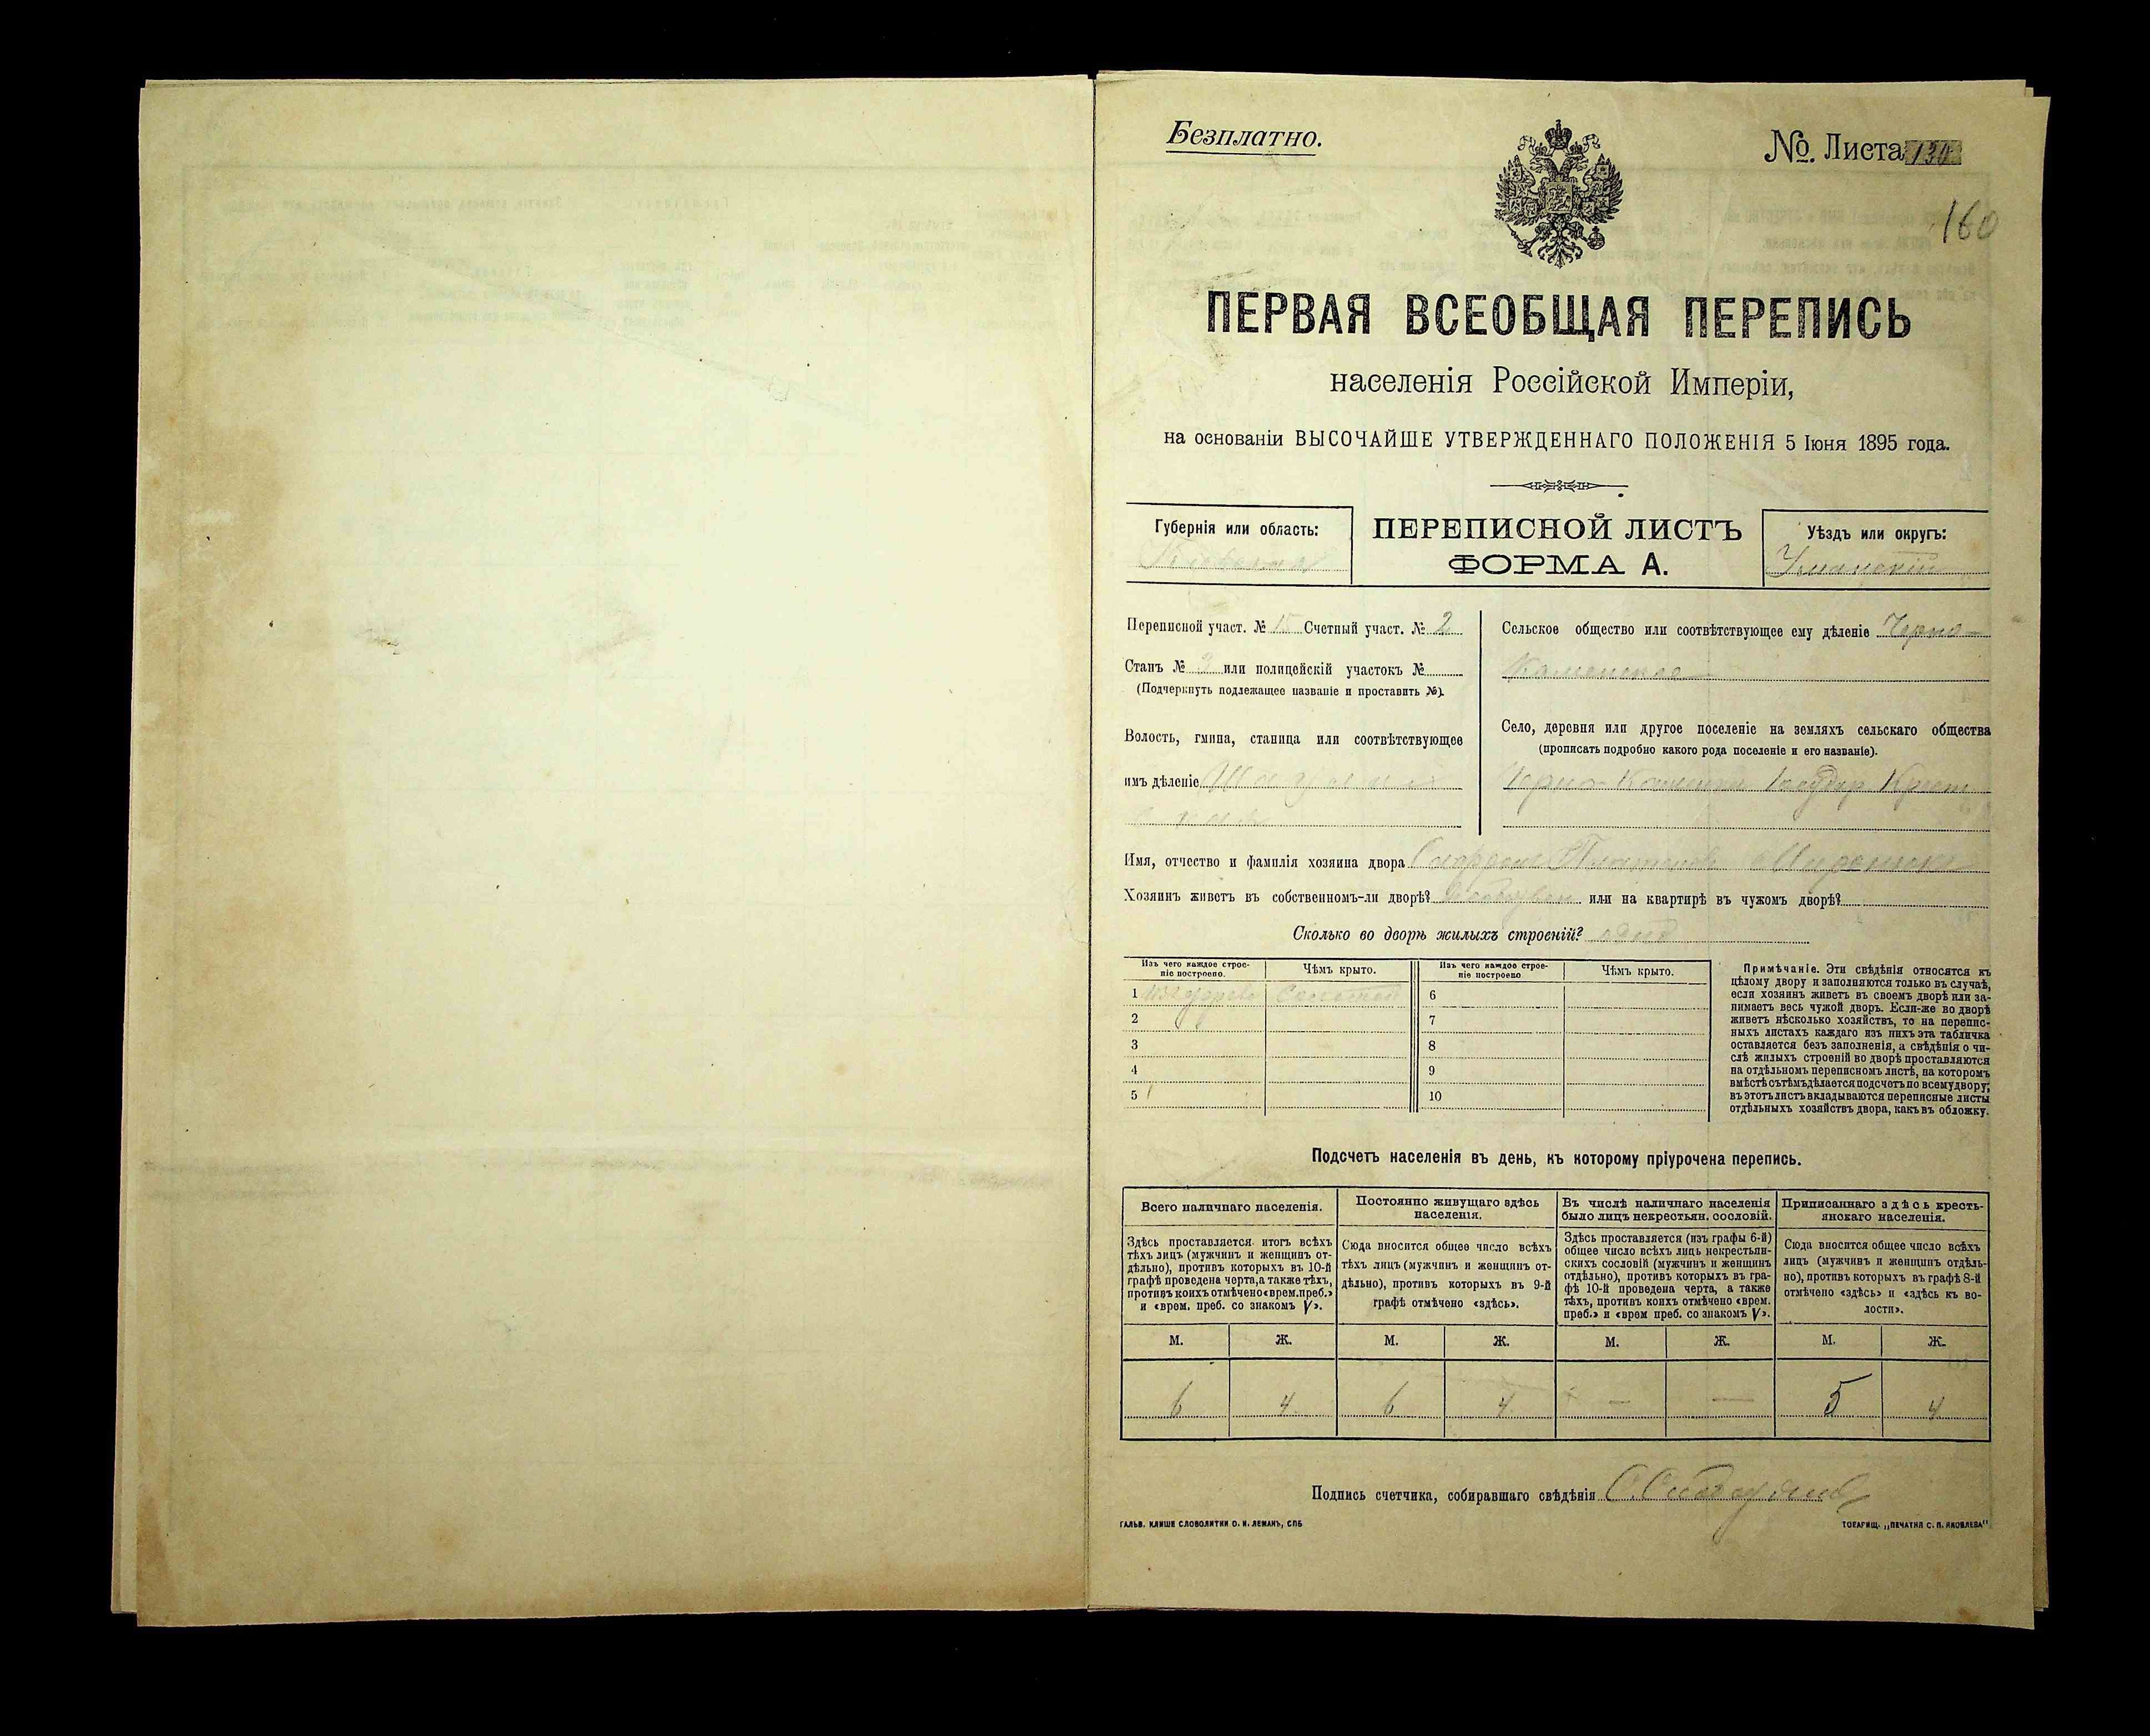 Безплатно.
№. Листа 130
160
ПЕРВАЯ ВСЕОБЩАЯ ПЕРЕПИСЬ
населенія Россійской Имперіи,
на основаніи ВЫСОЧАЙШЕ УТВЕРЖДЕННАГО ПОЛОЖЕНІЯ 5 Іюня 1895 года.
Губернія или область:
Кіевская
ПЕРЕПИСНОЙ ЛИСТЪ
ФОРМА А.
Уѣздъ или округъ:
Уманскій
Переписной участ. № 15 Счетный участ. № 2
Станъ № 3 или полицейскій участокъ №
(Подчеркнуть подлежащее названіе и проставить №).
Волость, гмина, станица или соотвѣтствующее
имъ дѣленіе
Сельское общество или соотвѣтствующее ему дѣленіе Черно-
Каменское
Село, деревня или другое поселеніе на земляхъ сельскаго общества
(прописать подробно какого рода поселеніе и его названіе).
Черно-Каменка
Имя, отчество и фамилія хозяина двора
Хозяинъ живетъ въ собственномъ-ли дворѣ? или на квартирѣ въ чужомъ дворѣ?
Сколько во дворѣ жилыхъ строеній? одно
Изъ чего каждое строе-
ніе построено.
Чѣмъ крыто.
Изъ чего каждое строе-
ніе построено
Чѣмъ крыто.
1 изъ дерева Соломой 6
2 7
3 8
4 9
5 10
Примѣчаніе. Эти свѣдѣнія относятся къ
цѣлому двору и заполняются только въ случаѣ,
если хозяинъ живетъ въ своемъ дворѣ или за-
нимаетъ весь чужой дворъ. Если-же во дворѣ
живетъ нѣсколько хозяйствъ, то на перепис-
ныхъ листахъ каждаго изъ нихъ эта табличка
оставляется безъ заполненія, а свѣдѣнія о чи-
слѣ жилыхъ строеній во дворѣ проставляются
на отдѣльномъ переписномъ листѣ, на которомъ
вмѣстѣ съ тѣмъ дѣлается подсчетъ по всему двору;
въ этотъ листъ вкладываются переписные листы
отдѣльныхъ хозяйствъ двора, какъ въ обложку.
Подсчетъ населенія въ день, къ которому пріурочена перепись.
Всего наличнаго населенія.
Здѣсь проставляется итогъ всѣхъ
тѣхъ лицъ (мужчинъ и женщинъ от-
дѣльно), противъ которыхъ въ 10-й
графѣ проведена черта, а также тѣхъ,
противъ коихъ отмѣчено «врем. преб.»
и «врем. преб. со знакомъ V».
Постоянно живущаго здѣсь
населенія.
Сюда вносится общее число всѣхъ
тѣхъ лицъ (мужчинъ и женщинъ от-
дѣльно), противъ которыхъ въ 9-й
графѣ отмѣчено «здѣсь».
Въ числѣ наличнаго населенія
было лицъ некрестьян. сословій.
Здѣсь проставляется (изъ графы 6-й)
общее число всѣхъ лицъ некрестьян-
скихъ сословій (мужчинъ и женщинъ
отдѣльно), противъ которыхъ въ гра-
фѣ 10-й проведена черта, а также
тѣхъ, противъ коихъ отмѣчено «врем.
преб.» и «врем преб. со знакомъ V».
Приписаннаго здѣсь кресть-
янскаго населенія.
Сюда вносится общее число всѣхъ
лицъ (мужчинъ и женщинъ отдѣль-
но), противъ которыхъ въ графѣ 8-й
отмѣчено «здѣсь» и «здѣсь къ во-
лости».
М. Ж. М. Ж. М. Ж. М. Ж.
6 4 6 4 — — 5 4
Подпись счетчика, собиравшаго свѣдѣнія
ГАЛЬВ. КЛИШЕ СЛОВОЛИТНИ О. И. ЛЕМАНЪ, СПБ
ТОВАРИЩ. „ПЕЧАТНЯ С. П. ЯКОВЛЕВА"